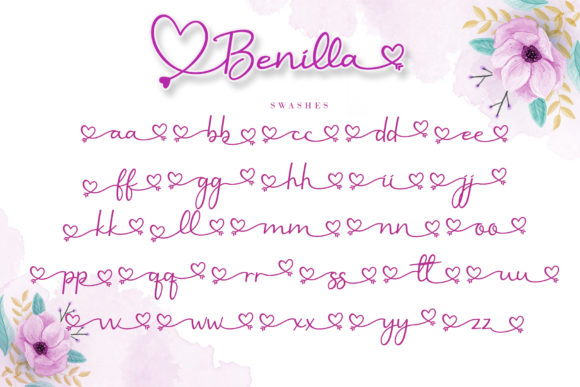 Benilla
SWASHES
aa bb cc dd ee
ff gg hh ii jj
kk ll mm nn oo
pp qq rr ss tt uu
vv ww xx yy zz